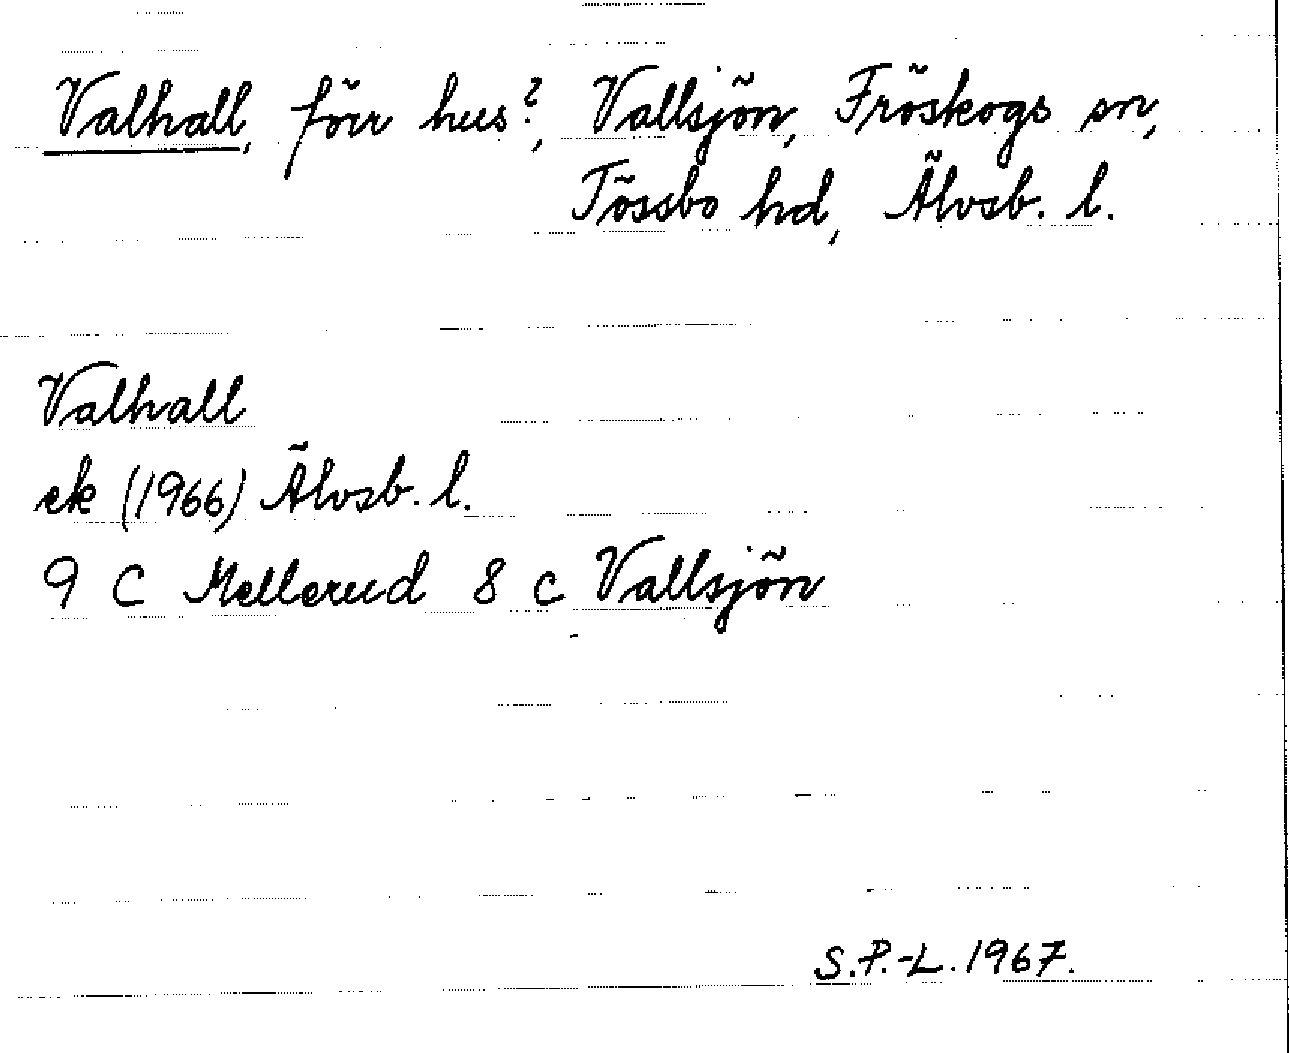 Valhall, förr hus?, Vallsjön, Fröskogs sn,
Tössbo hd, Älvsb. l.
Valhall
ek (1966) Älvsb. l.
9 C Mellerud 8 c Vallsjön
S.P.-L. 1967.